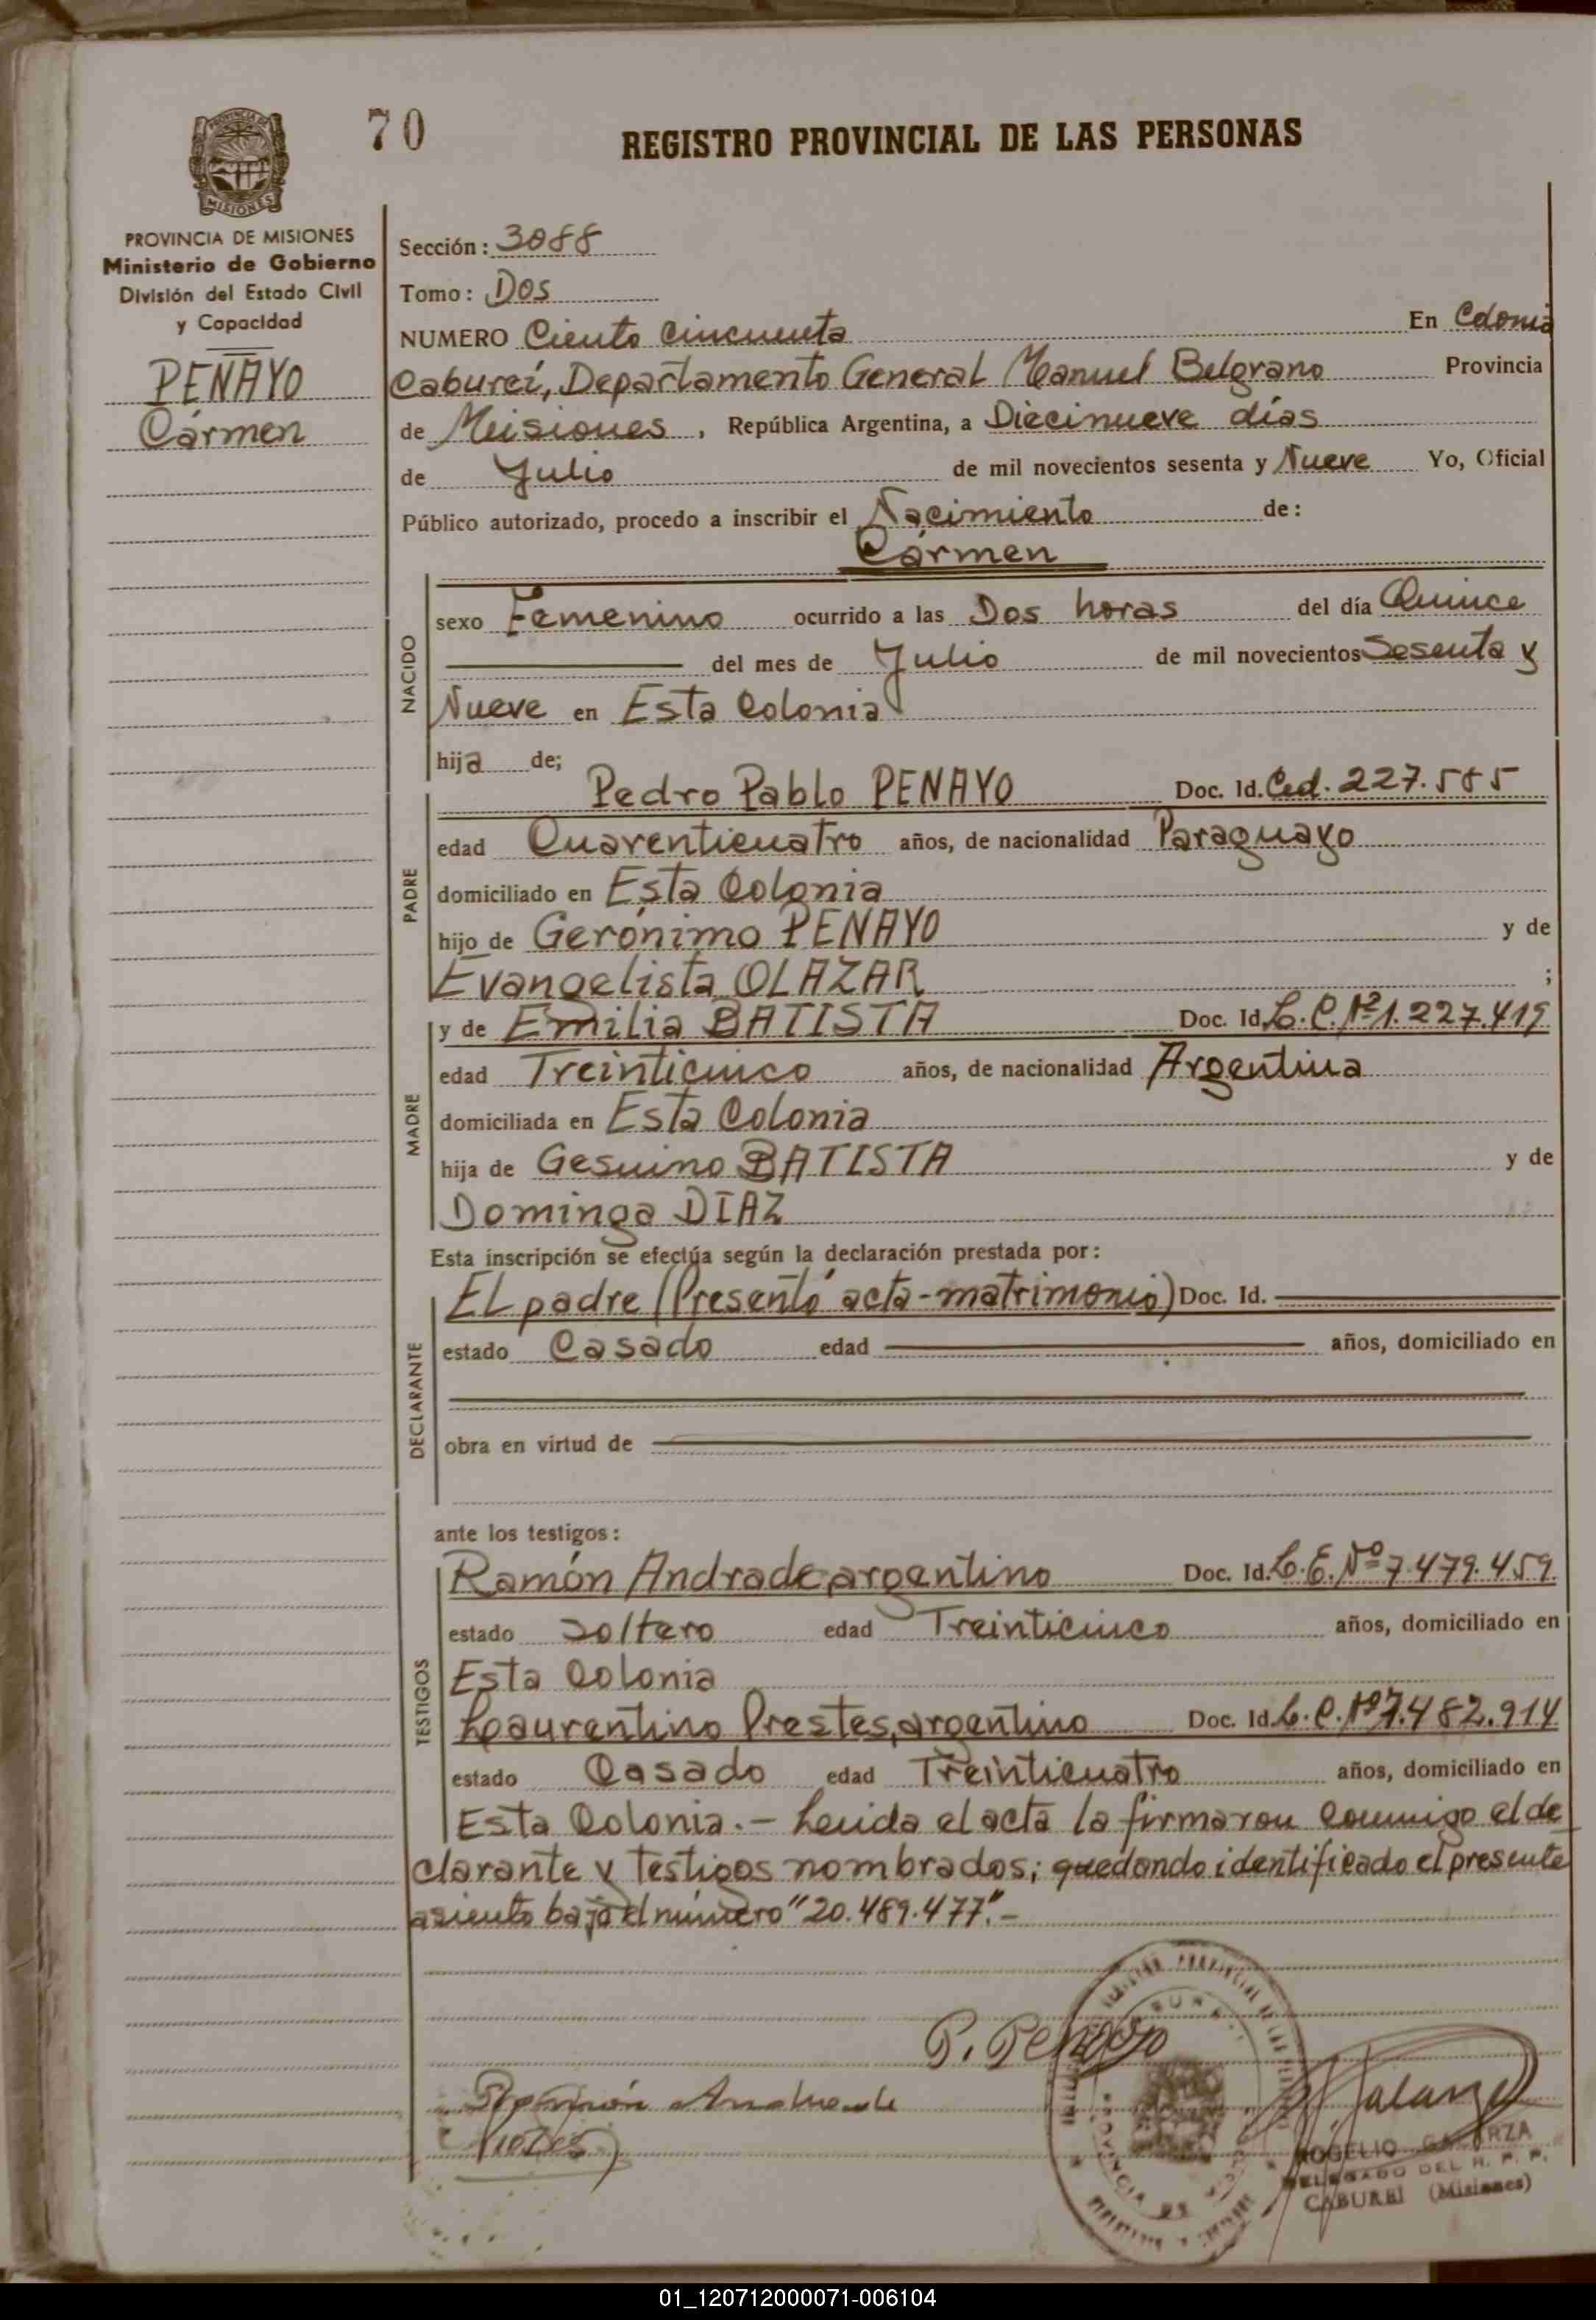 70
REGISTRO PROVINCIAL DE LAS PERSONAS
PROVINCIA DE
MISIONES
PROVINCIA DE MISIONES
Ministerio de Gobierno
División del Estado Civil
y Capacidad
PENAYO
Cármen
Sección: 3088
Tomo: Dos
NUMERO Ciento Cincuenta En Colonia
Caburei, Departamento General Manuel Belgrano Provincia
de Misiones, República Argentina, a Diecinueve días
de Julio de mil novecientos sesenta y Nueve Yo, Oficial
Público autorizado, procedo a inscribir el Nacimiento de:
Cármen
NACIDO
sexo Femenino ocurrido a las Dos horas del día Quince
del mes de Julio de mil novecientos Sesenta y
Nueve en Esta Colonia
hija de;
PADRE
Pedro Pablo PENAYO Doc. Id. Ced. 227.585
edad Cuarenticuatro años, de nacionalidad Paraguayo
domiciliado en Esta Colonia
hijo de Gerónimo PENAYO y de
Evangelista OLAZAR ;
MADRE
y de Emilia BATISTA Doc. Id. L.C. Nº 1.227.419
edad Treinticinco años, de nacionalidad Argentina
domiciliada en Esta Colonia
hija de Gesuino BATISTA y de
Dominga DIAZ
Esta inscripción se efectúa según la declaración prestada por:
DECLARANTE
El padre (Presentó acta-matrimonio) Doc. Id.
estado Casado edad años, domiciliado en
obra en virtud de
ante los testigos:
TESTIGOS
Ramón Andrade, argentino Doc. Id. L.E. Nº 7.479.459
estado Soltero edad Treinticinco años, domiciliado en
Esta Colonia
Laurentino Prestes, argentino Doc. Id. L.E. Nº 7.482.914
estado Casado edad Treinticuatro años, domiciliado en
Esta Colonia.- Leida el acta la firmaron conmigo el de
clarante y testigos nombrados; quedando identificado el presente
asiento bajo el número "20.489.477".-
P. Penayo
ROGELIO GALARZA
DELEGADO DEL R. P. P.
CABUREI (Misiones)
01_120712000071-006104